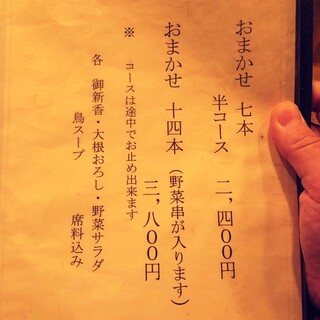 おまかせ 七本
半コース 二,四〇〇円
おまかせ 十四本(野菜串が入ります)
三,八〇〇円
※ コースは途中でお止め出来ます
各 御新香・大根おろし・野菜サラダ
鳥スープ 席料込み